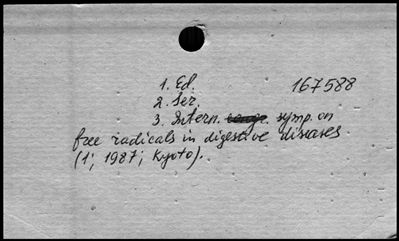 1. Ed. 167588
2. Ser.
3. Intern. symp. on
free radicals in digestive diseases
(1; 1987; Kyoto).